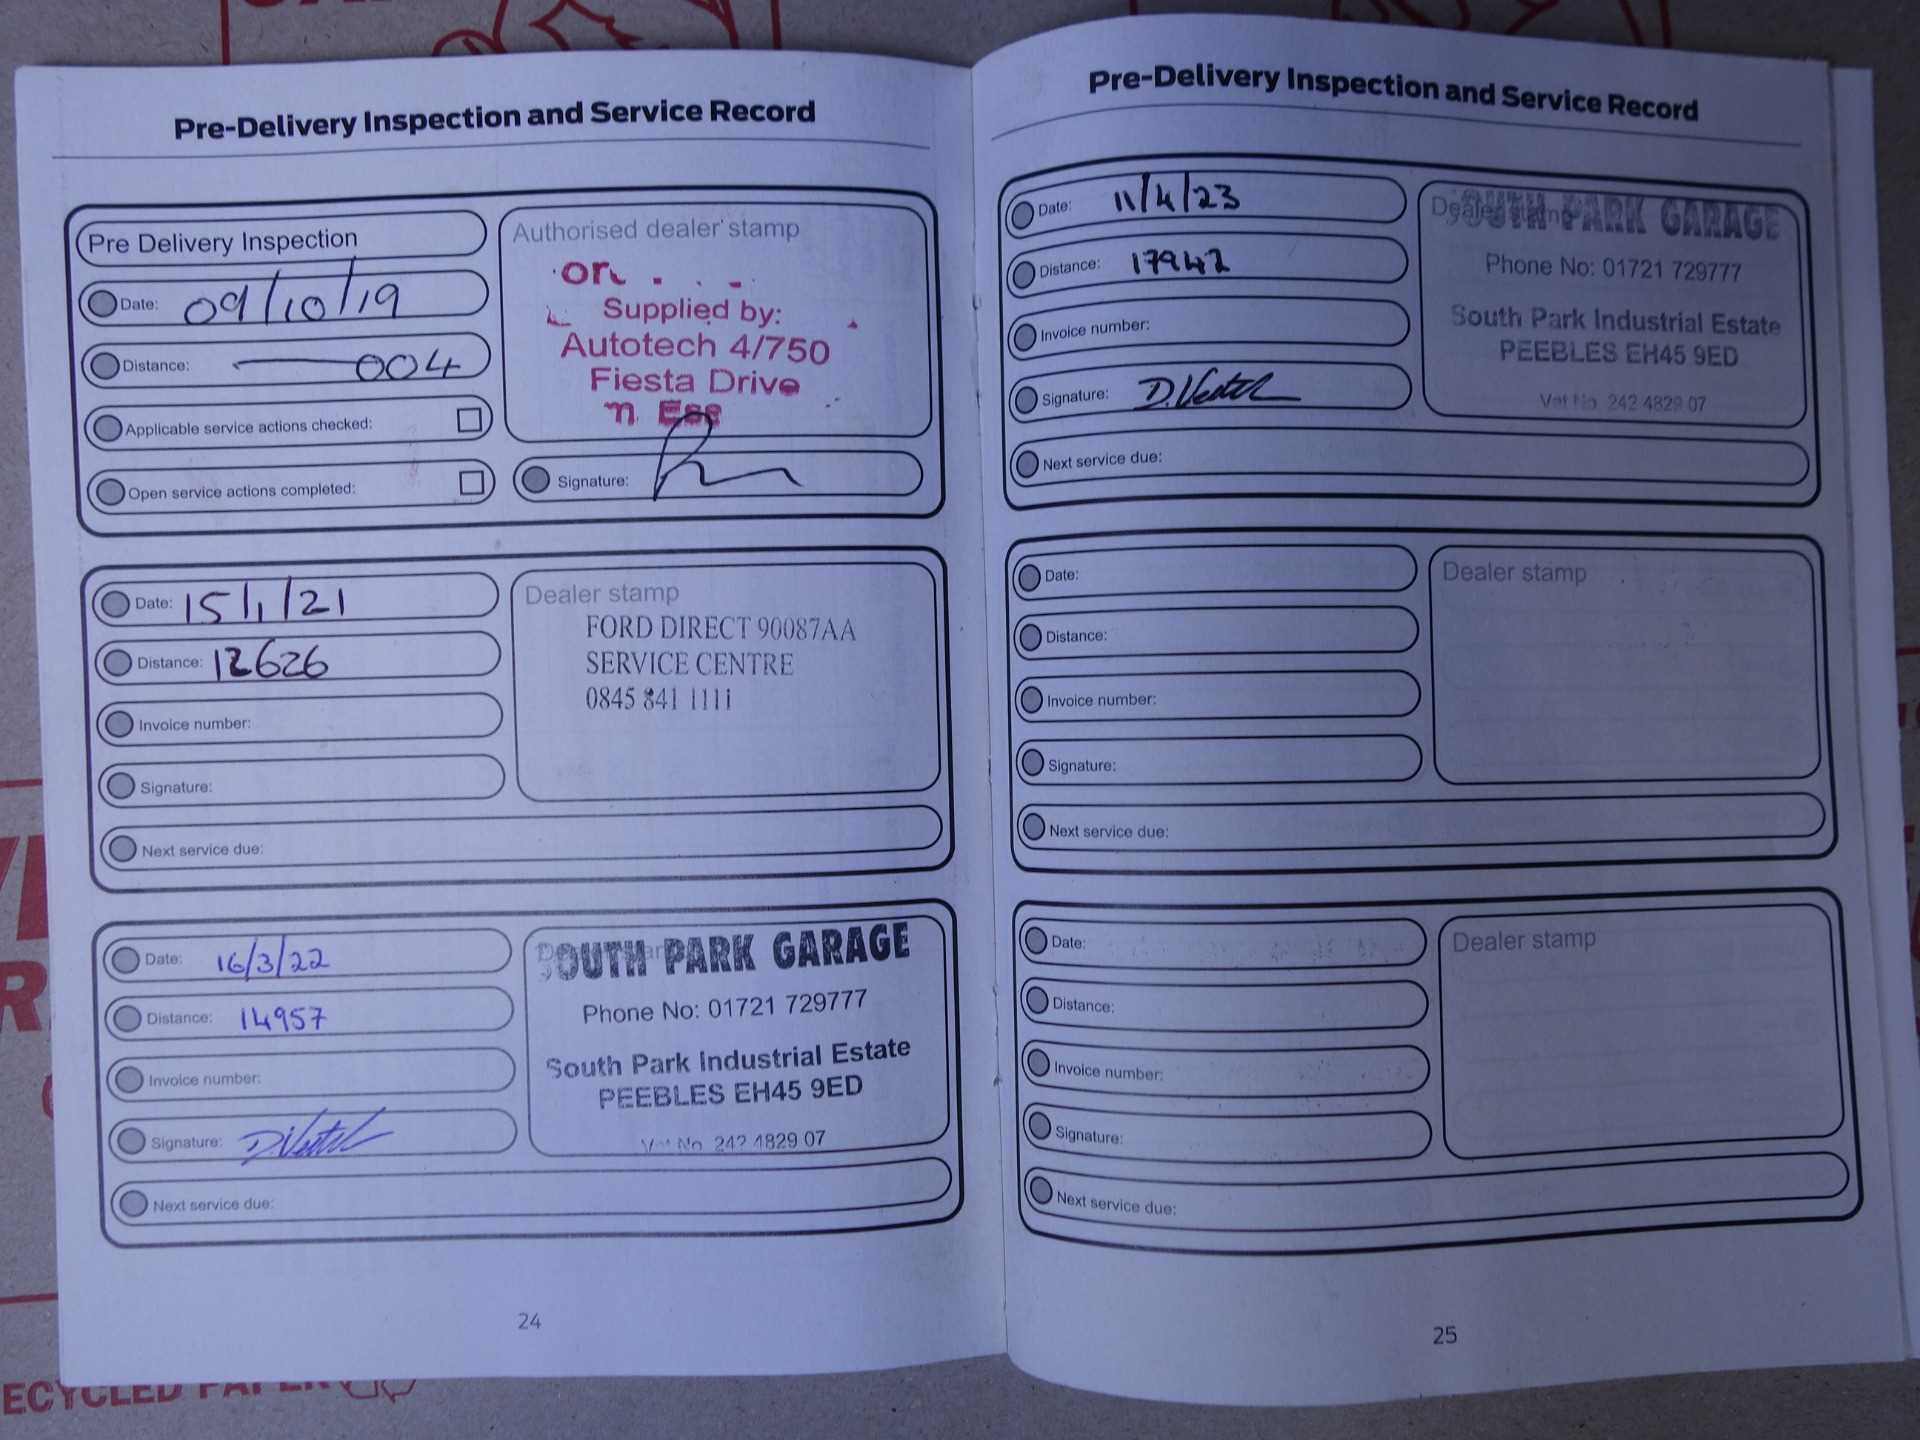 Pre-Delivery Inspection and Service Record
Pre Delivery Inspection
Date: 09/10/19
Distance: 004
Applicable service actions checked:
Open service actions completed:
Authorised dealer stamp
Supplied by:
Autotech 4/750
Fiesta Drive
Signature:
Date: 15/1/21
Distance: 12626
Invoice number:
Signature:
Next service due:
Dealer stamp
FORD DIRECT 90087AA
SERVICE CENTRE
0845 841 1111
Date: 16/3/22
Distance: 14957
Invoice number:
Signature:
Next service due:
SOUTH PARK GARAGE
Phone No: 01721 729777
South Park Industrial Estate
PEEBLES EH45 9ED
Vat No 242 4829 07
24
Pre-Delivery Inspection and Service Record
Date: 11/4/23
Distance: 17942
Invoice number:
Signature:
Next service due:
Dealer stamp
SOUTH PARK GARAGE
Phone No: 01721 729777
South Park Industrial Estate
PEEBLES EH45 9ED
Vat No 242 4829 07
Date:
Distance:
Invoice number:
Signature:
Next service due:
Dealer stamp
Date:
Distance:
Invoice number:
Signature:
Next service due:
Dealer stamp
25